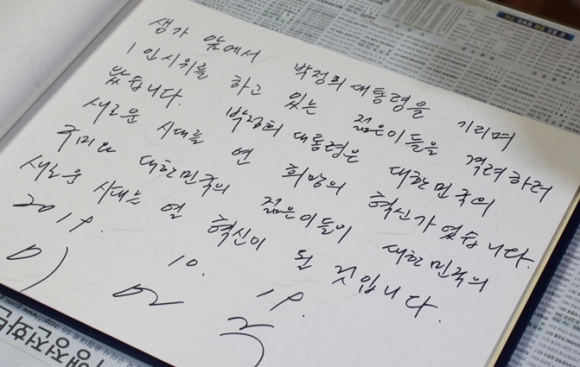 생가 앞에서 박정희 대통령을 기리며
1인시위를 하고 있는 젊은이들을 격려하러
왔습니다. 박정희 대통령은 대한민국의
새로운 시대를 연 희망의 혁신가였습니다.
대한민국의 젊은이들이 대한민국의
새로운 시대를 열 혁신이 될 것입니다.
2019. 10. 19.